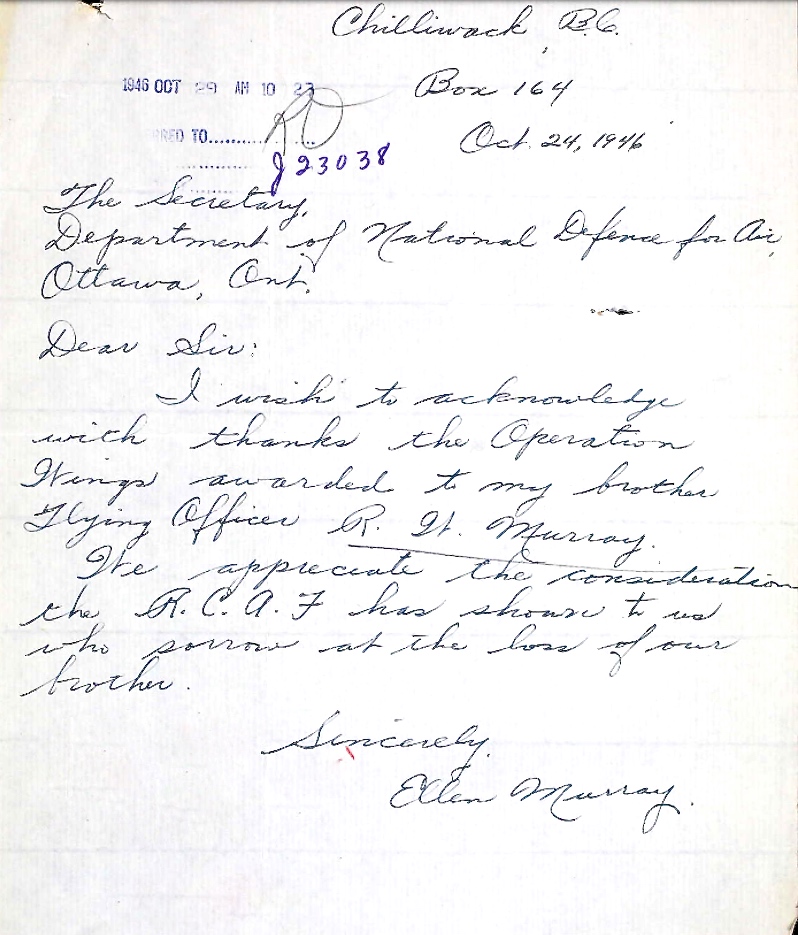 Chilliwack B.C.
1946 OCT 29 AM 10 23
Box 164
RED TO..............
Oct. 24, 1946
J 23038
The Secretary,
Department of National Defence for Air,
Ottawa, Ont.
Dear Sir:
I wish to acknowledge
with thanks the Operation
Wings awarded to my brother
Flying Officer R. W. Murray.
We appreciate the consideration
the R.C.A.F has shown to us
who sorrow at the loss of our
brother.
Sincerely,
Ellen Murray.